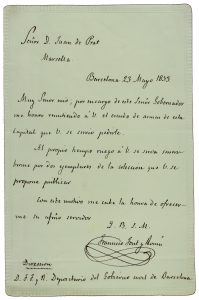 Señor D. Juan de Prat
Marsella
Barcelona 23 Mayo 1893
Muy Señor mio; por encargo de este Señor Gobernador
me honro remitiendo á V. el escudo de armas de esta
Capital que V. se sirvió pedirle.
Al propio tiempo ruego á V. se sirva suscri-
birme por dos ejemplares de la coleccion que V. se
propone publicar
Con este motivo me cabe la honra de ofrecer-
me su afmo servidor
Q. B. S. M.
Francisco
Direccion
D. F. F. y M. Depositario del Gobierno civil de Barcelona